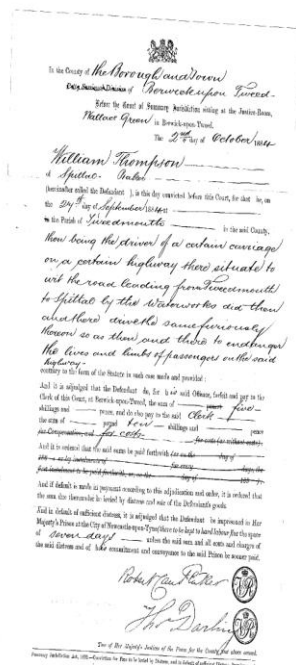 In the County of the Borough and Town
Petty Sessional Division of Berwick upon Tweed
Before the Court of Summary Jurisdiction sitting at the Justice-Room,
Wallace Green in Berwick-upon-Tweed,
The 2nd day of October 1884
William Thompson
of Spittal Baker
(hereinafter called the Defendant), is this day convicted before this Court, for that he, on
the 24th day of September 1884 at
in the Parish of Tweedmouth in the said County,
then being the driver of a certain carriage
on a certain highway there situate to
wit the road leading from Tweedmouth
to Spittal by the Waterworks did then
and there drive the same furiously
thereon so as then and there to endanger
the lives and limbs of passengers on the said
highway.
contrary to the form of the Statute in such case made and provided:
And it is adjudged that the Defendant do, for his said Offence, forfeit and pay to the
Clerk of this Court, at Berwick-upon-Tweed, the sum of pound five
shillings and pence, and do also pay to the said Clerk
the sum of pound ten shillings and pence
for Compensation, and for costs
And it is ordered that the said sums be paid forthwith
And if default is made in payment according to this adjudication and order, it is ordered that
the sum due thereunder be levied by distress and sale of the Defendant's goods.
And in default of sufficient distress, it is adjudged that the Defendant be imprisoned in Her
Majesty's Prison at the City of Newcastle-upon-Tyne there to be kept to hard labour for the space
of seven days unless the said sum and all costs and charges of
the said distress and of his commitment and conveyance to the said Prison be sooner paid.
Tho Darling
Two of Her Majesty's Justices of the Peace for the County first above named.